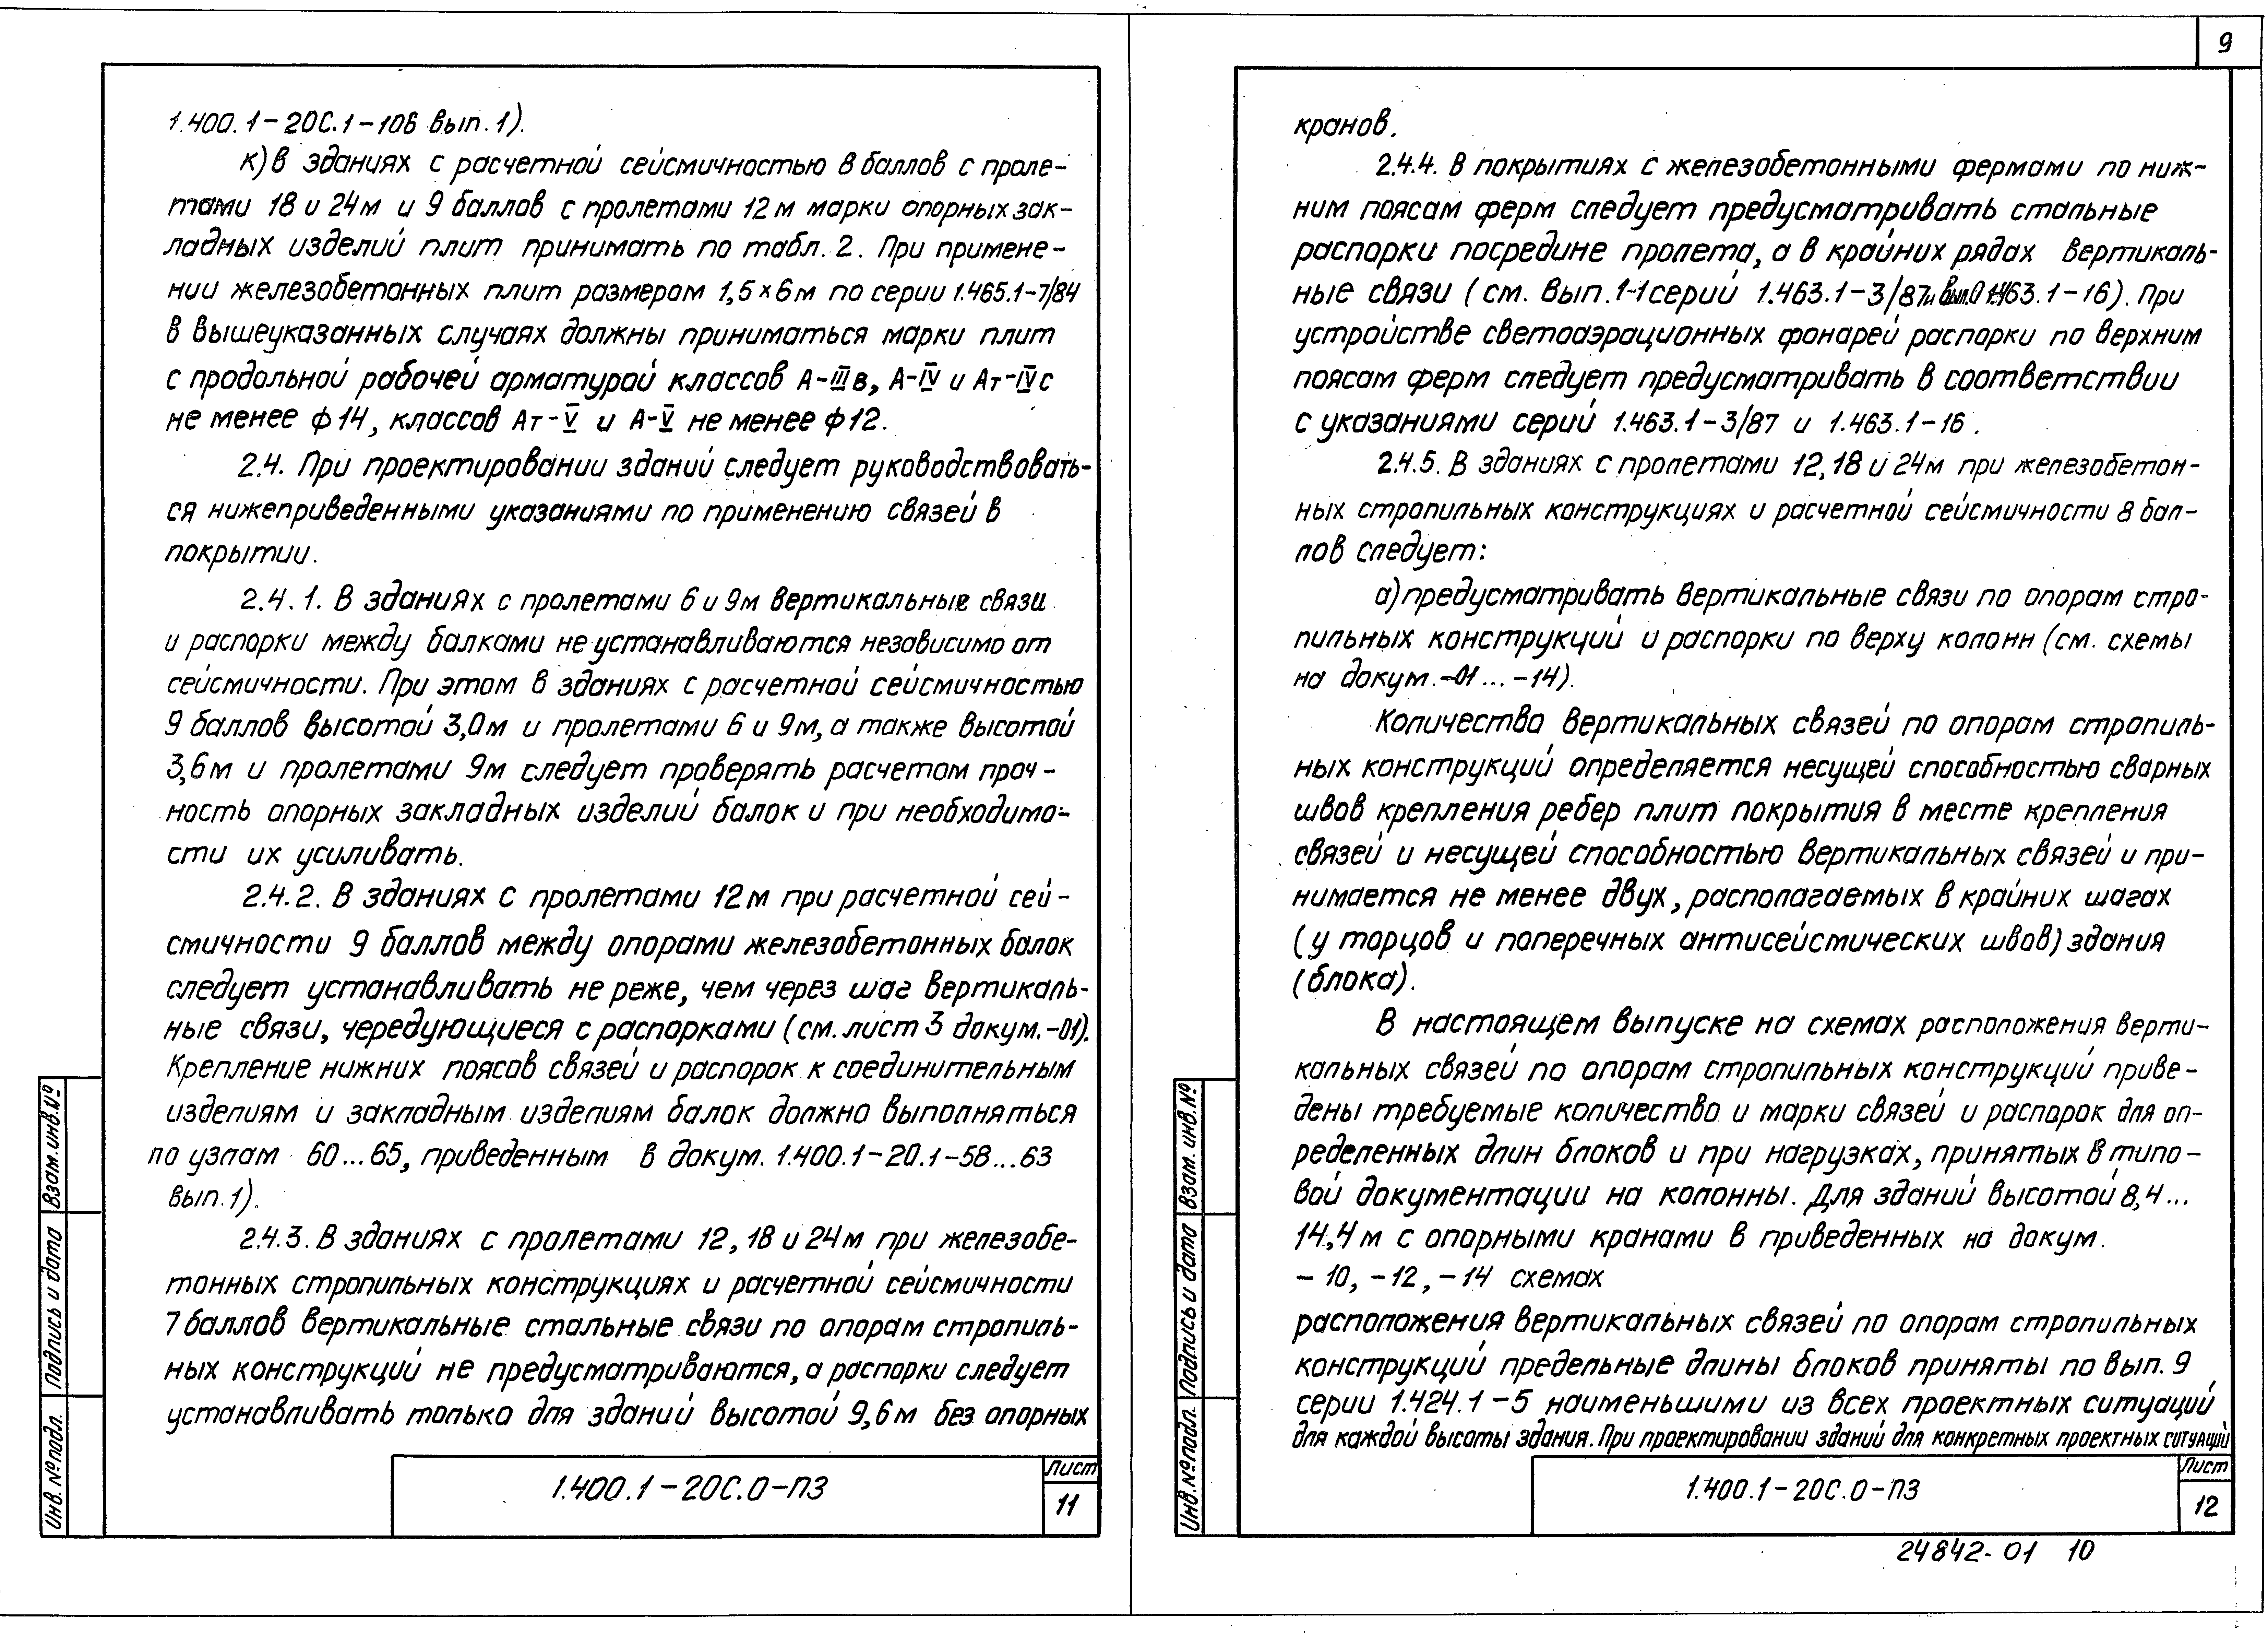 9
1.400.1-20С.1-106 вып.1).
к) в зданиях с расчетной сейсмичностью 8 баллов с проле-
тами 18 и 24м и 9 баллов с пролетами 12м марки опорных зак-
ладных изделий плит принимать по табл. 2. При примене-
нии железобетонных плит размером 1,5×6м по серии 1.465.1-7/84
в вышеуказанных случаях должны приниматься марки плит
с продольной рабочей арматурой классов А-IIIв, А-IV и Ат-IVс
не менее ф14, классов Ат-V и А-V не менее ф12.
2.4. При проектировании зданий следует руководствовать-
ся нижеприведенными указаниями по применению связей в
покрытии.
2.4.1. В зданиях с пролетами 6 и 9м вертикальные связи
и распорки между балками не устанавливаются независимо от
сейсмичности. При этом в зданиях с расчетной сейсмичностью
9 баллов высотой 3,0м и пролетами 6 и 9м, а также высотой
3,6м и пролетами 9м следует проверять расчетом проч-
ность опорных закладных изделий балок и при необходимо-
сти их усиливать.
2.4.2. В зданиях с пролетами 12м при расчетной сей-
смичности 9 баллов между опорами железобетонных балок
следует устанавливать не реже, чем через шаг вертикаль-
ные связи, чередующиеся с распорками (см. лист 3 докум.-01).
Крепление нижних поясов связей и распорок к соединительным
изделиям и закладным изделиям балок должно выполняться
по узлам 60...65, приведенным в докум. 1.400.1-20.1-58...63
вып.1).
2.4.3. В зданиях с пролетами 12, 18 и 24м при железобе-
тонных стропильных конструкциях и расчетной сейсмичности
7 баллов вертикальные стальные связи по опорам стропиль-
ных конструкций не предусматриваются, а распорки следует
устанавливать только для зданий высотой 9,6м без опорных
Инв.№подл. Подпись и дата Взам.инв.№
1.400.1-20С.0-ПЗ
Лист
11
кранов.
2.4.4. В покрытиях с железобетонными фермами по ниж-
ним поясам ферм следует предусматривать стальные
распорки посредине пролета, а в крайних рядах вертикаль-
ные связи (см. вып.1-1 серий 1.463.1-3/87 и вып.0 1.463.1-16). При
устройстве светоаэрационных фонарей распорки по верхним
поясам ферм следует предусматривать в соответствии
с указаниями серий 1.463.1-3/87 и 1.463.1-16.
2.4.5. В зданиях с пролетами 12, 18 и 24м при железобетон-
ных стропильных конструкциях и расчетной сейсмичности 8 бал-
лов следует:
а) предусматривать вертикальные связи по опорам стро-
пильных конструкций и распорки по верху колонн (см. схемы
на докум.-01...-14).
Количество вертикальных связей по опорам стропиль-
ных конструкций определяется несущей способностью сварных
швов крепления ребер плит покрытия в месте крепления
связей и несущей способностью вертикальных связей и при-
нимается не менее двух, располагаемых в крайних шагах
(у торцов и поперечных антисейсмических швов) здания
(блока).
В настоящем выпуске на схемах расположения верти-
кальных связей по опорам стропильных конструкций приве-
дены требуемые количество и марки связей и распорок для оп-
ределенных длин блоков и при нагрузках, принятых в типо-
вой документации на колонны. Для зданий высотой 8,4...
14,4м с опорными кранами в приведенных на докум.
-10, -12, -14 схемах
расположения вертикальных связей по опорам стропильных
конструкций предельные длины блоков приняты по вып. 9
серии 1.424.1-5 наименьшими из всех проектных ситуаций,
для каждой высоты здания. При проектировании зданий для конкретных проектных ситуаций
Инв.№подл. Подпись и дата Взам.инв.№
1.400.1-20С.0-ПЗ
Лист
12
24842-01 10